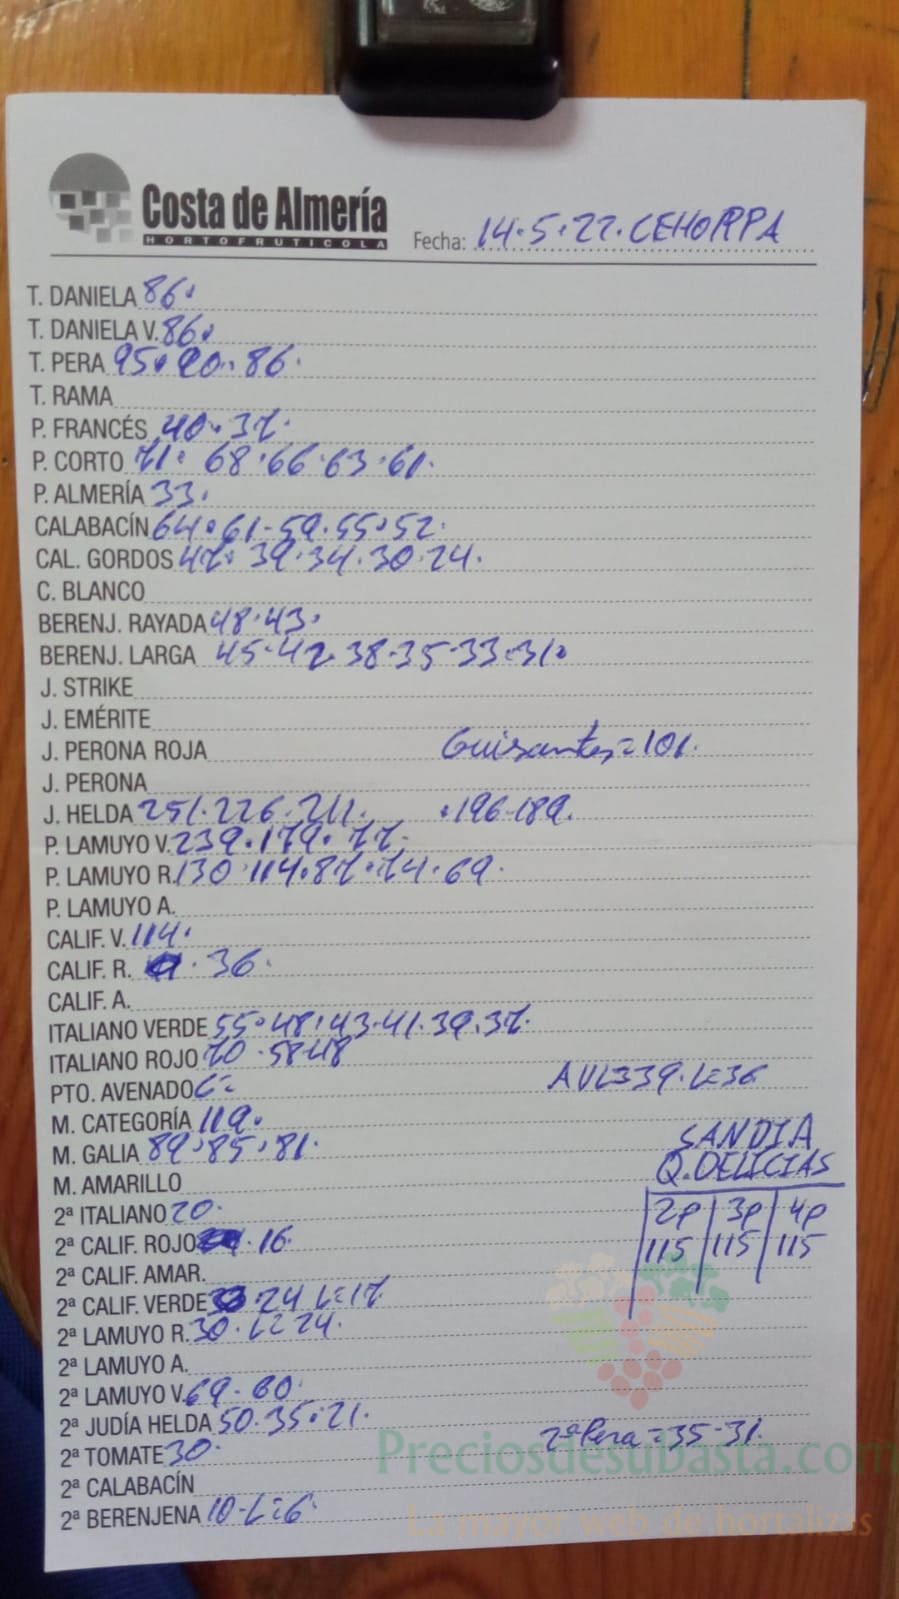 Costa de Almería
HORTOFRUTICOLA
Fecha: 14.5.22. CEHORPA
T. DANIELA 86.
T. DANIELA V. 86.
T. PERA 95.90.86.
T. RAMA
P. FRANCÉS 40.37.
P. CORTO 71.68.66.63.61.
P. ALMERÍA 33.
CALABACÍN 64.61-59.55.52.
CAL. GORDOS 47.39.34.30.24.
C. BLANCO
BERENJ. RAYADA 48.43.
BERENJ. LARGA 45.42.38.35.33.31.
J. STRIKE
J. EMÉRITE
J. PERONA ROJA Guisantes=101.
J. PERONA
J. HELDA 251.226.211. .196-189.
P. LAMUYO V. 239.179.77.
P. LAMUYO R. 130.114.87.74.69.
P. LAMUYO A.
CALIF. V. 114.
CALIF. R. .36.
CALIF. A.
ITALIANO VERDE 55.48.43.41.39.37.
ITALIANO ROJO 70.58-48
PTO. AVENADO C= AVL=339.L=36
M. CATEGORÍA 119.
M. GALIA 89.85.81.
M. AMARILLO
SANDIA
Q. DELICIAS
2P 3P 4P
115 115 115
2ª ITALIANO 20.
2ª CALIF. ROJO .16.
2ª CALIF. AMAR.
2ª CALIF. VERDE .24 L=17.
2ª LAMUYO R. 30.L=24.
2ª LAMUYO A.
2ª LAMUYO V. 69-60.
2ª JUDÍA HELDA 50.35.21.
2ª TOMATE 30. 2ª Pera=35-31.
2ª CALABACÍN
2ª BERENJENA 10-L=6.
Preciosdesubasta.com
La mayor web de hortalizas